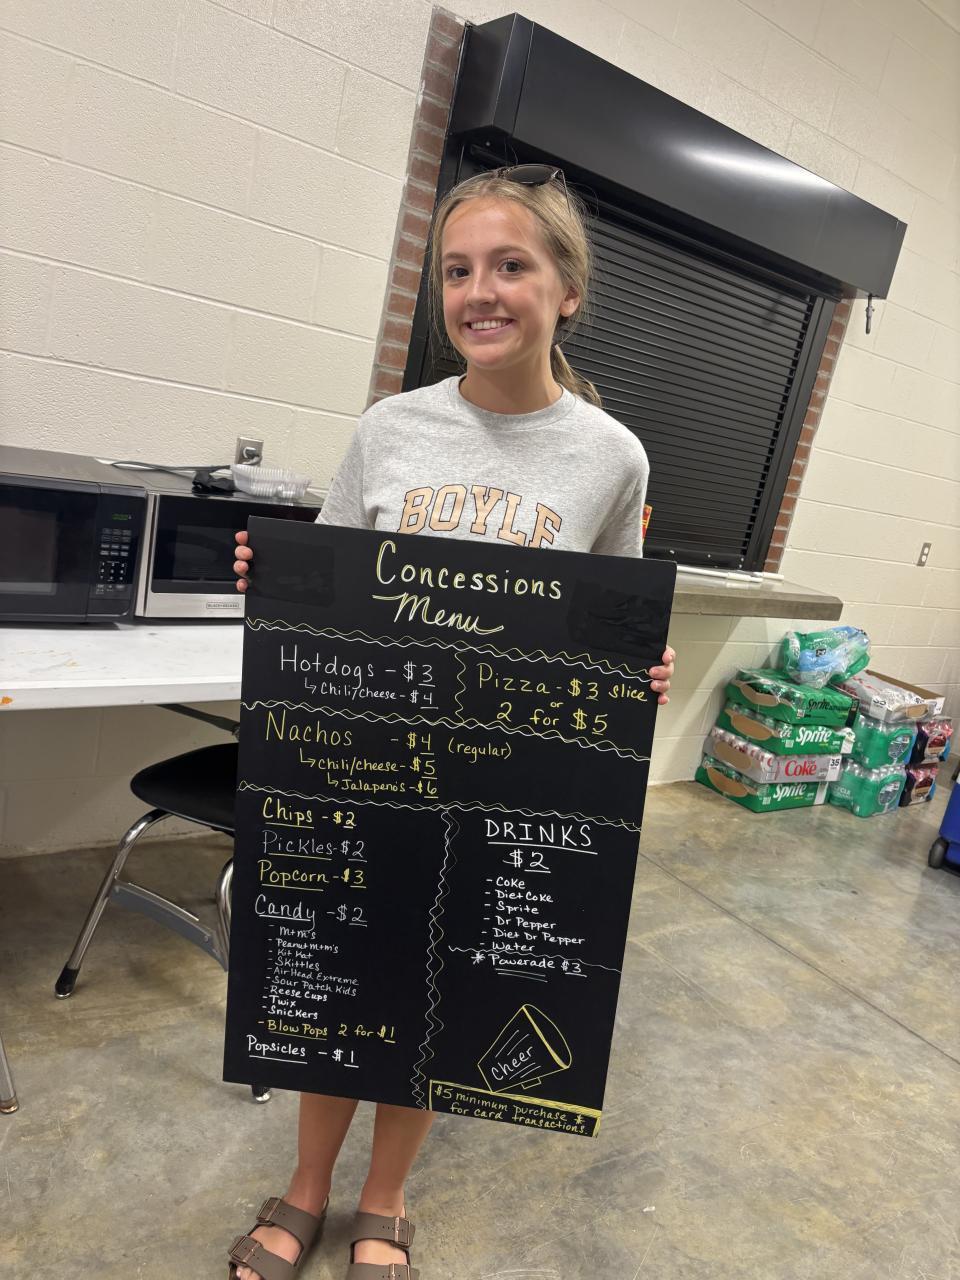 BOYLE
Concessions
Menu
Hotdogs - $3
↳ Chili/cheese - $4
Pizza - $3 slice
or
2 for $5
Nachos - $4 (regular)
↳ Chili/cheese - $5
↳ Jalapenos - $6
Chips - $2
Pickles - $2
Popcorn - $3
Candy - $2
- M+M's
- Peanut M+M's
- Kit Kat
- Skittles
- AirHead Extreme
- Sour Patch Kids
- Reese Cups
- Twix
- Snickers
- Blow Pops 2 for $1
Popsicles - $1
DRINKS
$2
- Coke
- Diet Coke
- Sprite
- Dr Pepper
- Diet Dr Pepper
- Water
* Powerade $3
Cheer
$5 minimum purchase *
for card transactions.
BLACK+DECKER
Sprite
Coke
35
Sprite